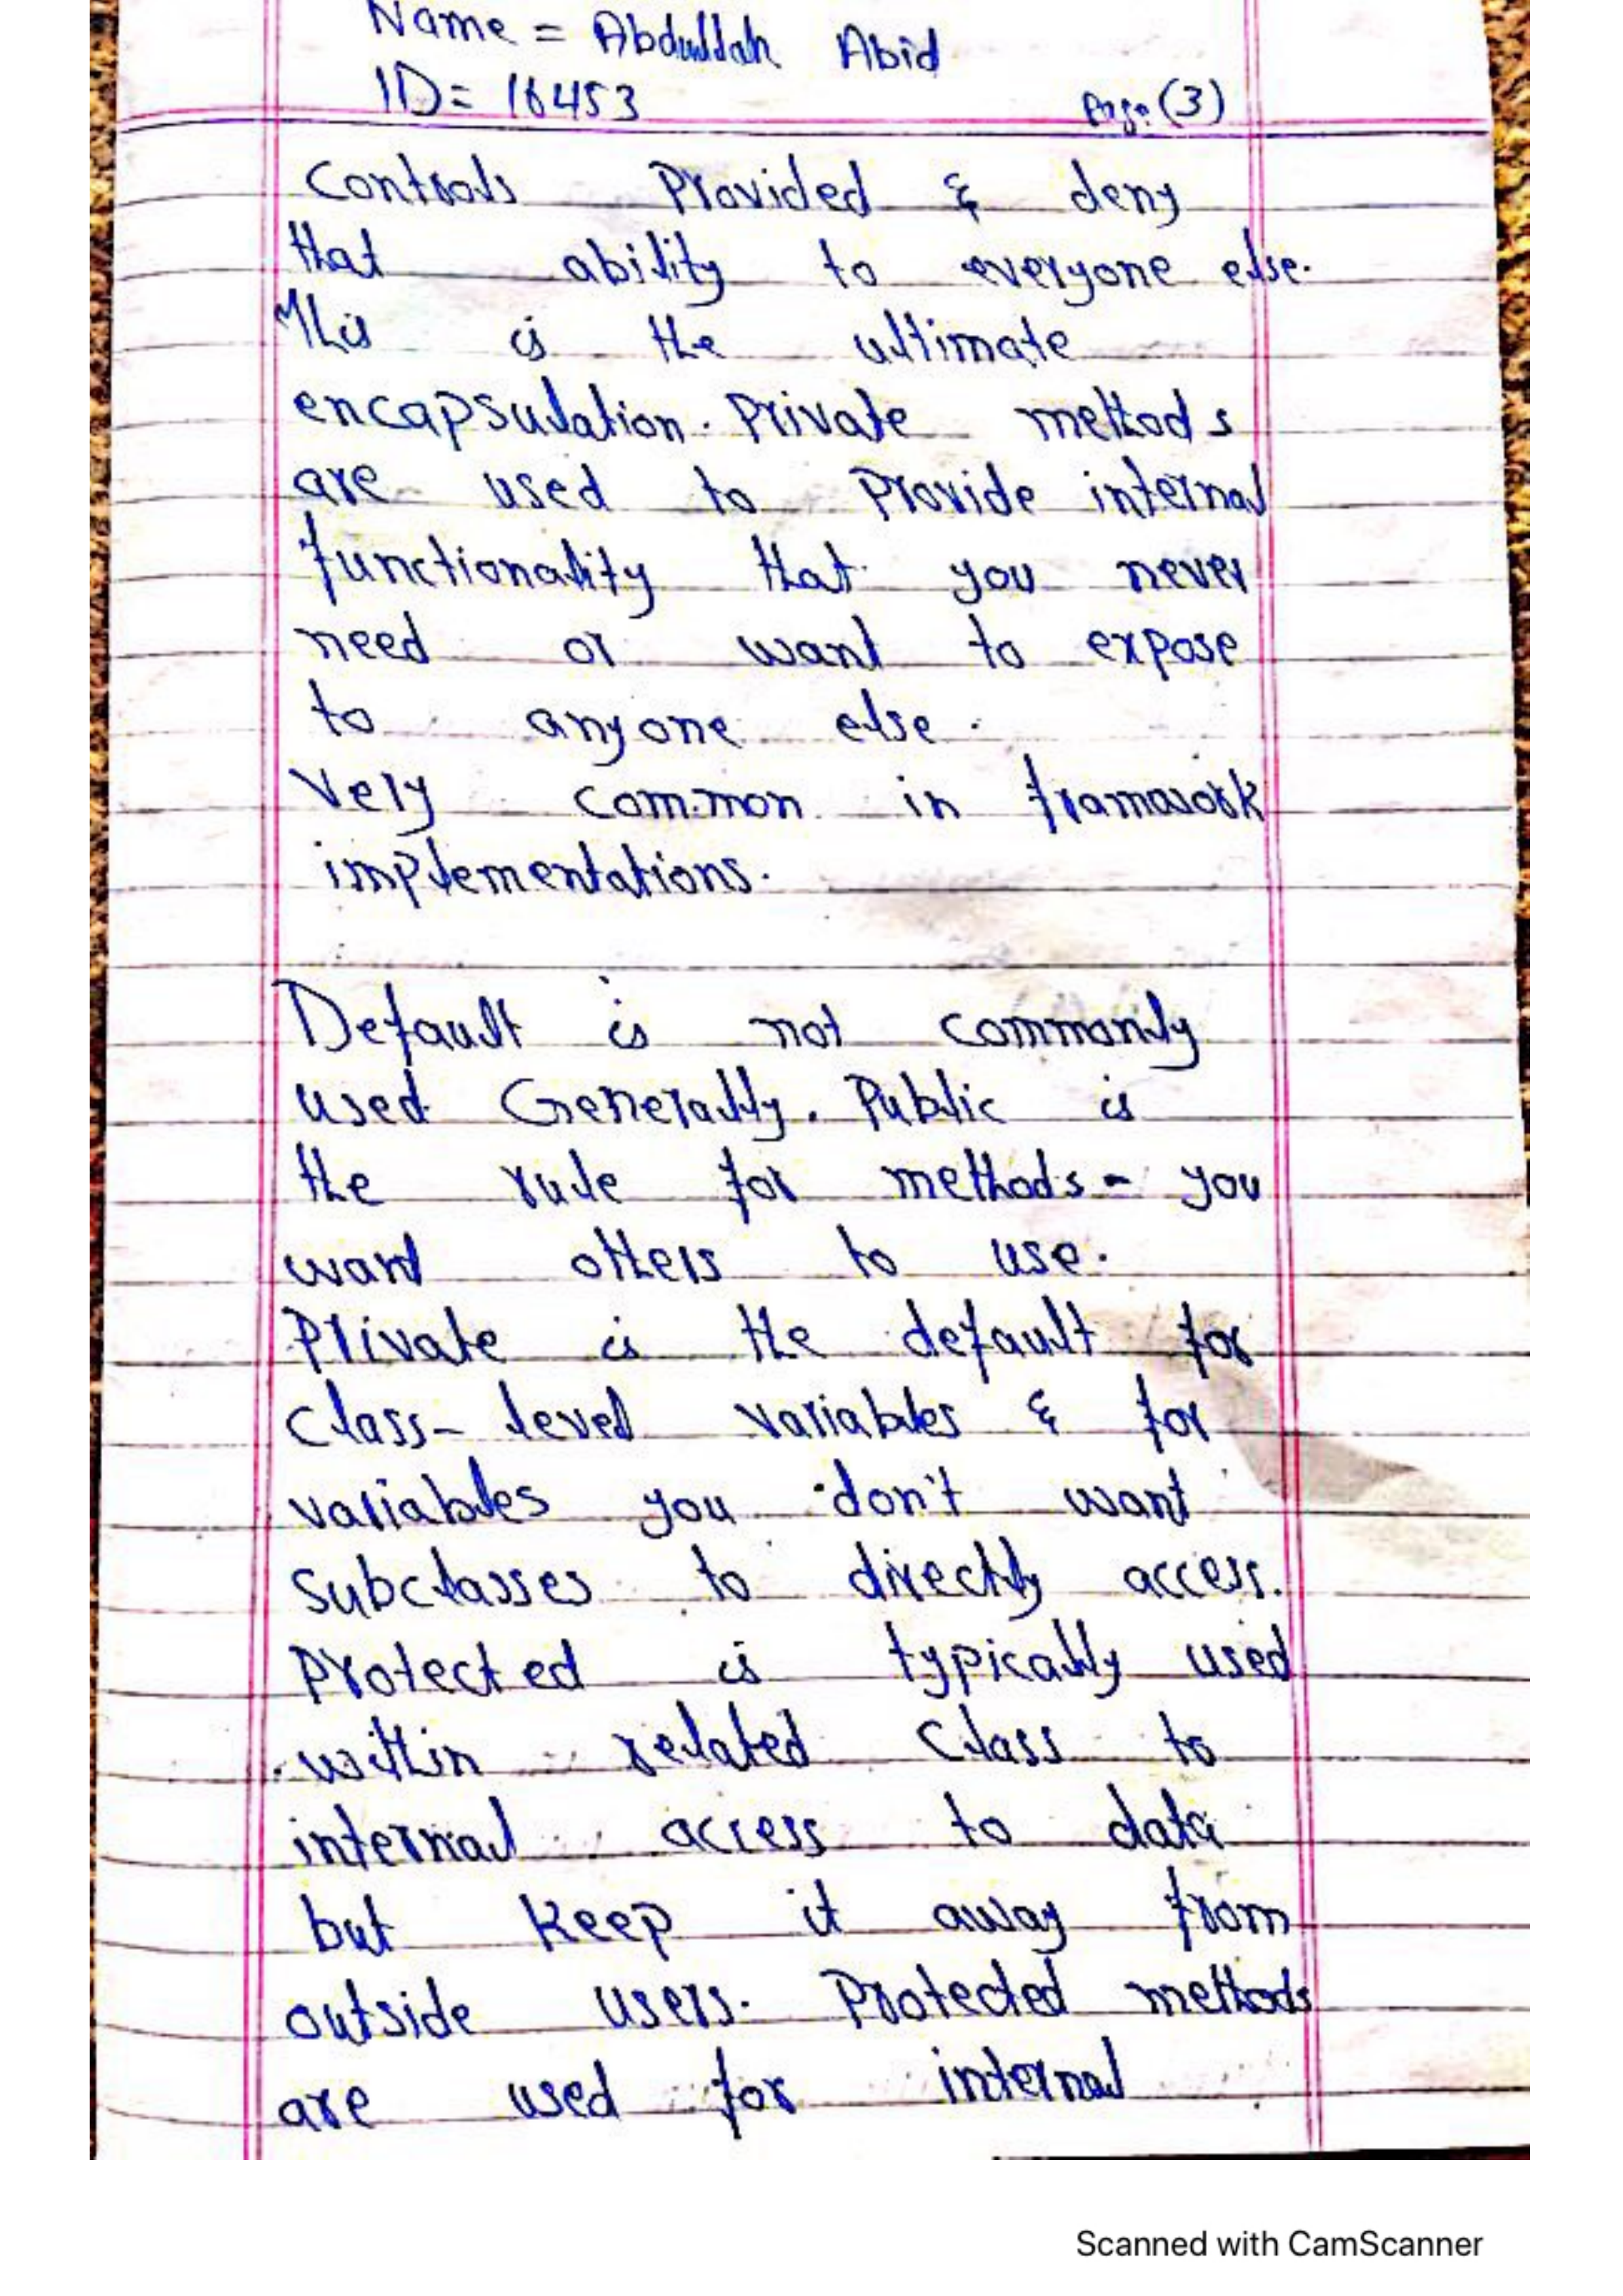 Name = Abdullah Abid
ID= 16453 Page (3)
Controls Provided & deny
that ability to everyone else.
This is the ultimate
encapsulation. Private methods
are used to Provide internal
functionality that you never
need or want to expose
to anyone else.
Very common in framawork
implementations.
Default is not commonly
used Generally. Public is
the rule for methods - you
want others to use.
Private is the default for
Class- level variables & for
variables you don't want
subclasses to directly access.
Protected is typically used
within related Class to
internal access to data
but Keep it away from
outside users. Protected methods
are used for internal
Scanned with CamScanner